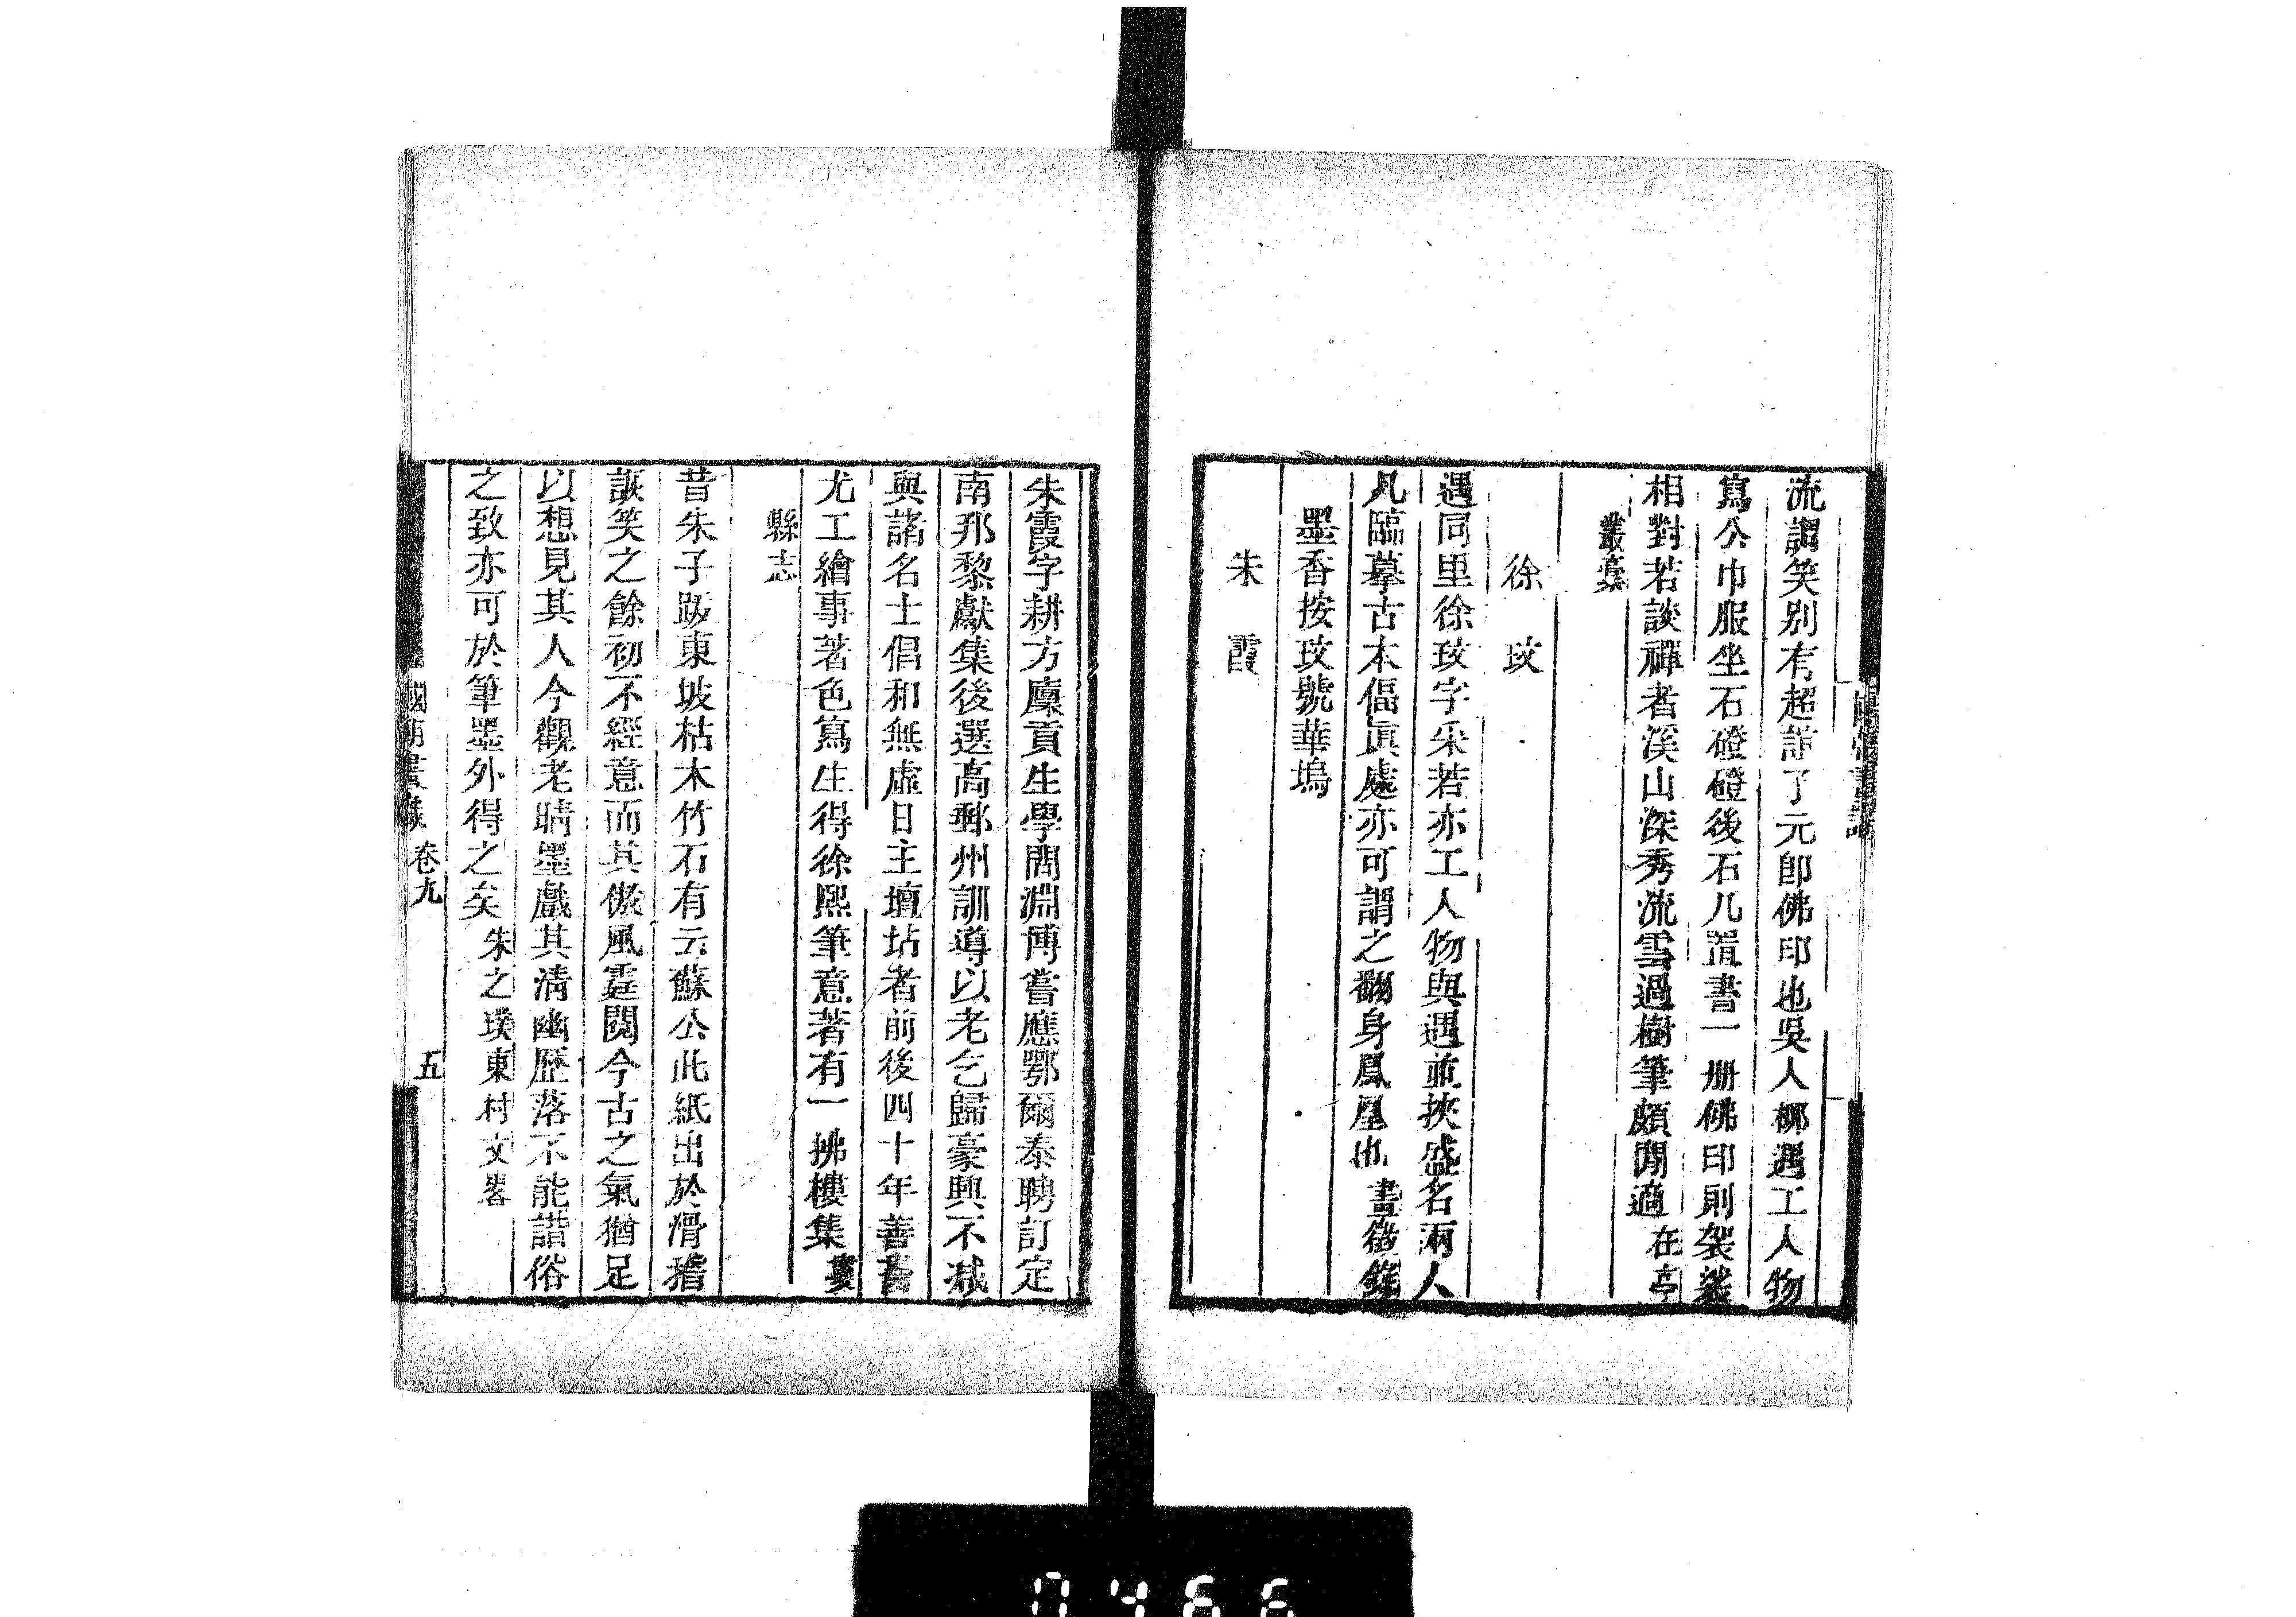 流謂笑别有超詣了元卽佛印也吳人栁遇工人物
寫公巾服坐石磴磴後石几置書一册佛印則袈裟
相對若談禪者溪山深秀流雲過樹筆頗閒適在亭
叢藁
徐玫
遇同里徐玫字采若亦工人物與遇並挾盛名兩人
凡臨摹古本偪眞處亦可謂之翻身鳳凰也畫徵錄
墨香按玫號華塢
朱霞
朱霞字耕方廩貢生學問淵博嘗應鄂爾泰聘訂定
南邦黎獻集後選高郵州訓導以老乞歸豪興不減
與諸名士倡和無虛日主壇坫者前後四十年善書
尤工繪事著色寫生得徐熙筆意著有一拂樓集婁
縣志
昔朱子跋東坡枯木竹石有云蘇公此紙出於滑稽
詼笑之餘初不經意而其傲風霆閱今古之氣猶足
以想見其人今觀老晴墨戲其清幽歷落不能諧俗
之致亦可於筆墨外得之矣朱之璞東村文畧
國朝畫識 卷九 五